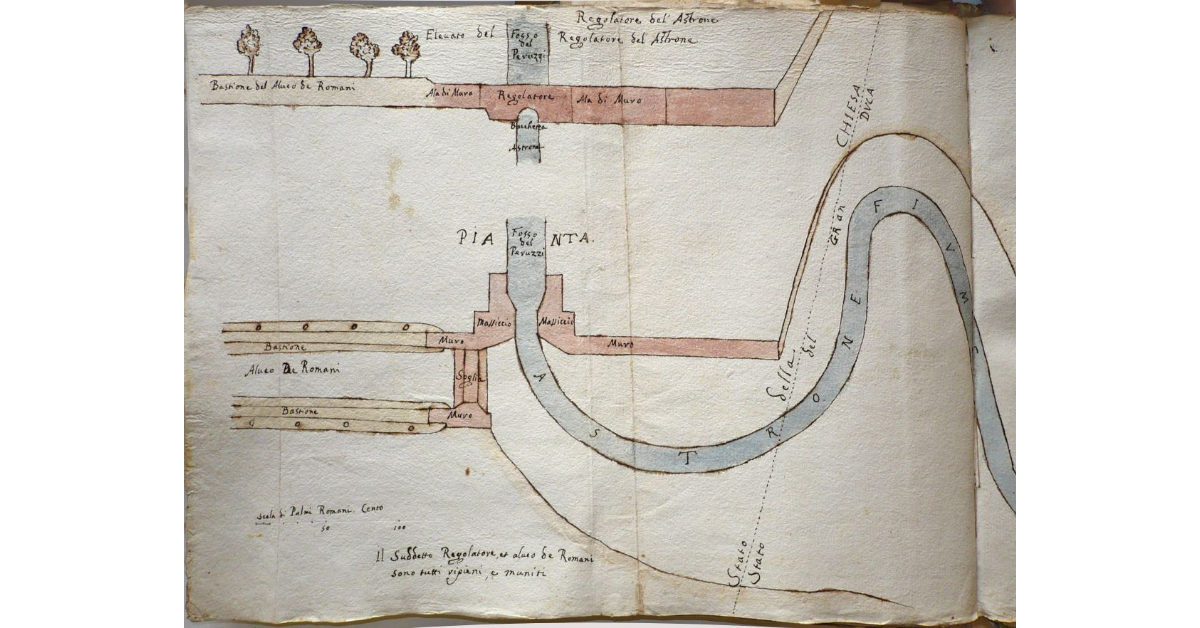 Regolatore del' Astrone
Elevato del Regolatore del Astrone
Fosso
del
Peruzzi
Bastione del Alueo de Romani
Ala di Muro
Regolatore
Ala di Muro
Bocchetta
Astrone
PIANTA.
Fosso
del
Peruzzi
Massiccio
Massiccio
Muro
Muro
Bastione
Alueo De Romani
Soglia
Bastione
Muro
ASTRONE FIVM
Stato della CHIESA
Stato del GRAN DVCA
Scala di Palmi Romani Cento
50 100
Il Suddetto Regolatore, et alueo de Romani
sono tutti ripieni, e muniti